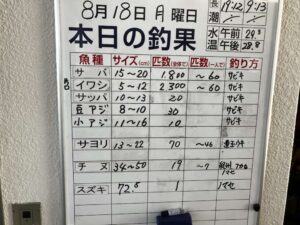 8月18日 月曜日
長 19:12 9:13
潮
本日の釣果
水 午前 29.3
温 午後 28.8
魚種 サイズ(cm) 匹数(全体で) 匹数(一人で) 釣り方
サバ 15〜20 1800 〜60 サビキ
イワシ 5〜12 2300 〜60 サビキ
サッパ 10〜13 20 サビキ
豆アジ 8〜10 30 〃
小アジ 11〜16 10 〃
サヨリ 13〜22 70 〜46
チヌ 34〜50 19 〜7
スズキ 72.5 1 ノマセ